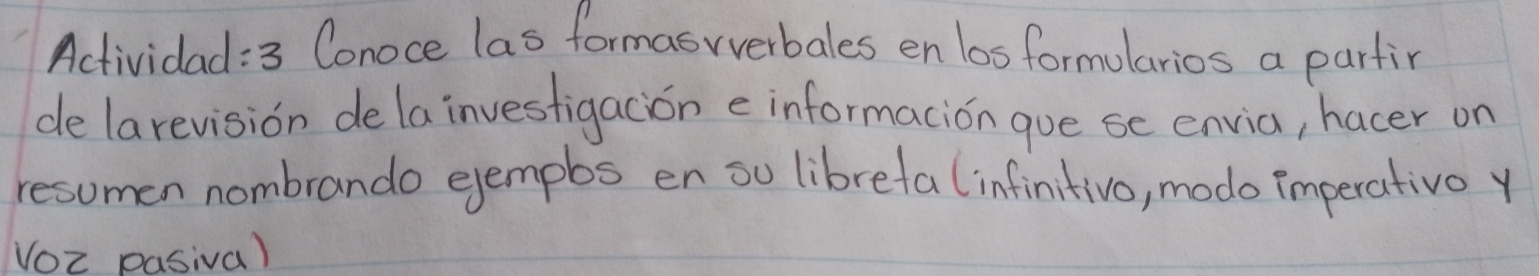 Actividad:3 Conoce las formasvverbales en los formularios a partir
de la revisión de la investigación e información que se envia, hacer un
resumen nombrando ejemplos en su libreta (infinitivo, modo imperativo y
voz pasiva)